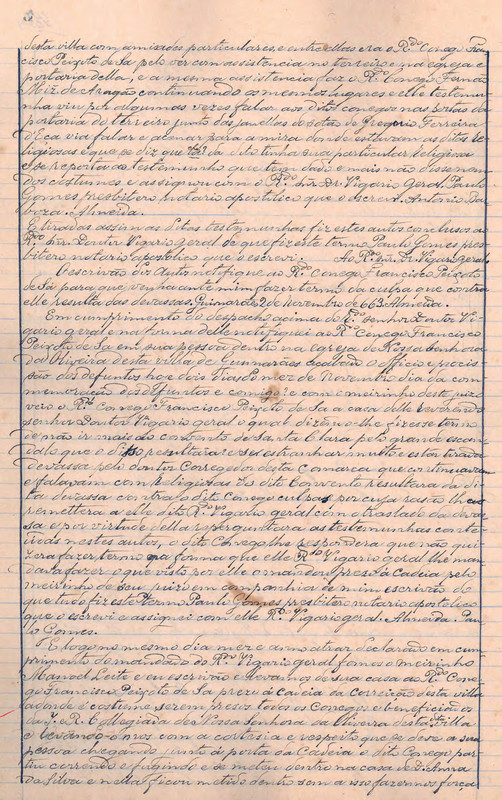 3
desta villa com amizades particulares, e entre ellas era o R.do Conego Fran
cisco Peixoto de Sa pelo ver com assistencia no terreiro e na egreja e
portaria della, e a mesma assistencia faz o R.do Conego Fernão
Miz de Aragão continuando os mesmos lugares e elle testemu
nha viu por algumas vezes falar aos ditos conegos nas portão da
portaria do terreiro junto das janellas do Sotão de Gregorio Ferreira
d'Eca via falar e acenar para a mira donde estavam as ditas Re
ligiosas e que se diz que cada um dito tinha sua particular Religiosa
e se reporta ao testemunho que tem dado e mais não disse nem
dos costumes e assignou com o R.do Snr. Dr. Vigario Geral. Paulo
Gomes presbitero notario apostolico que o escrevi. Antonio Bar
boza. Almeida.
E tiradas assim as ditas testemunhas fiz estes autos conclusos ao
R.do Snr. Doutor Vigario geral de que fiz este termo Paulo Gomes presbi
tero notario apostolico que o escrevi. Ao R.do Snr. Dr. Vigar. Geral.
O escrivão dos Autos notifique ao R.do Conego Francisco Peixoto
de Sá para que venha ante mim fazer termo da culpa que contra
elle resulta das devassas. Guimarães 2 de Novembro de 663. Almeida.
Em cumprimento do despacho acima do R.do senhor Doutor Vi
gario geral e na forma delle notifiquei ao R.do Conego Francisco
Peixoto de Sa em sua pessoa dentro na egreja de Nossa Senhora
da Oliveira desta villa de Guimarães acabado o officio e procis
são dos defuntos hoje dois dias do mez de Novembro dia da com
memoração dos defuntos e comigo e com o meirinho deste juizo
veio o R.do Conego Francisco Peixoto de Sa a casa delle Reverendo
senhor Doutor Vigario geral o qual dizendo-lhe fizesse term
de não ir mais ao convento de Santa Clara pelo grande escan
dalo que disso resultara e se estranhar muito e estar tirada
devassa pelo doutor Corregedor desta Comarca que continuavam
e falavam com Religiosas do dito Convento resultara da di
ta devassa contra o dito Conego culpas por cuja rasão lhe as
remettera a elle dito R.do Vigario geral com o traslado da devas
sa e por virtude della reperguntara as testemunhas conte
udas nestes autos, o dito Conego lhe respondera que não qui
zera fazer termo na forma que elle R.do Vigario geral lhe man
dava fazer o que visto por elle o mandou preso á Cadeia pelo
meirinho de seu juizo em companhia de mim escrivão do
que tudo fiz este termo Paulo Gomes presbitero notario apostolico
que o escrevi e assignei com elle R.do Vigario geral. Almeida. Pau
lo Gomes.
E logo no mesmo dia mez e anno atraz declarado em cum
primento do mandado do R.do Vigario geral fomos o meirinho
Manoel Leite e eu escrivão e levamos de sua casa ao R.do Cone
go Francisco Peixoto de Sa prezo á Cadeia da Correição desta villa
adonde é costume serem presos todos os Conegos e beneficiados
da R. Collegiada de Nossa Senhora da Oliveira desta Villa
e levando-o nos com a cortesia e respeito que se deve a sua
pessoa chegando junto á porta da Cadeia o dito Conego par
tiu correndo e fugindo e se meteu dentro na casa de D. Anna
da Silva e nella ficou metido dentro sem a isso fazermos força